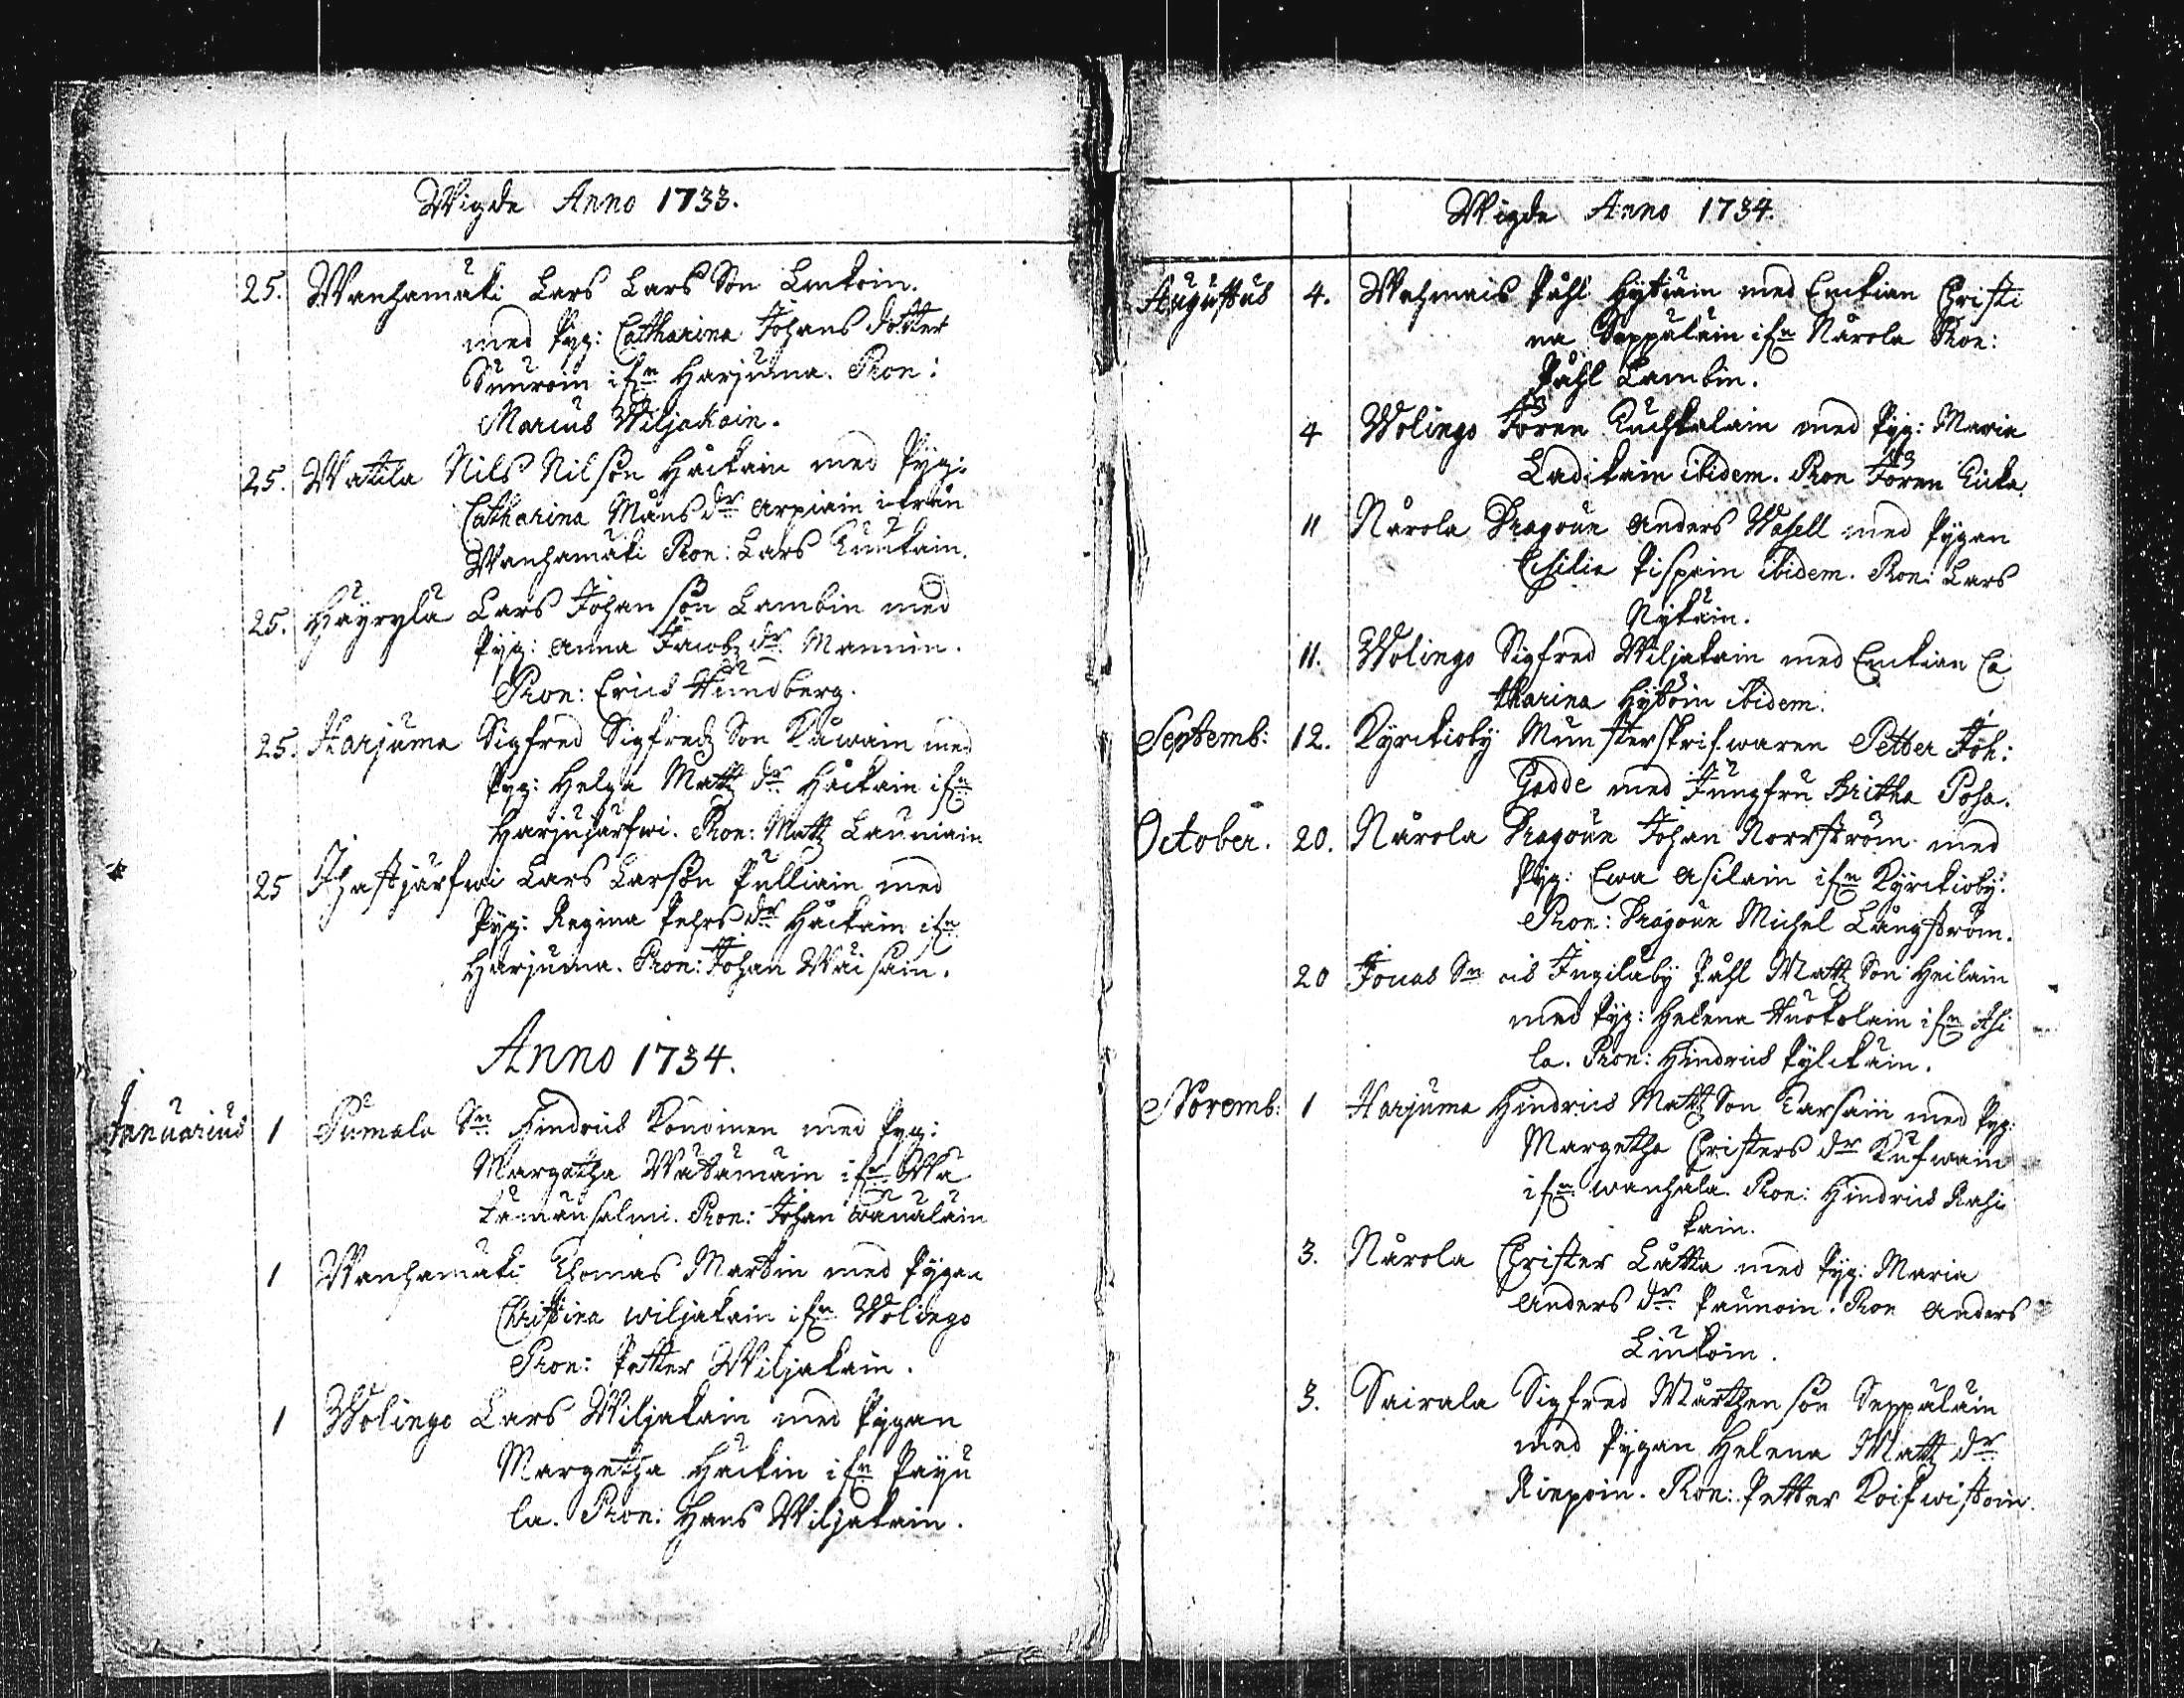 Wigde Anno 1733.
25. Wanhamäki Lars Lars Son Lenkoin.
med Pyg: Catharina Johans dotter
Suuroin ifrn Harjuma. Pron:
Marcus Wiljakain.
25. Watila Nils Nilson Häckäin med Pyg:
Catharina Måns dr Arpiain ifrån
Wanhamäki Pron: Lars Kuukain.
25. Häyrylä Lars Johan son Lambin med
Pyg: Anna Jacobz dr Mannin.
Pron: Erics Hundberg.
25. Harjuma Sigfred Sigfredz Son Kuwain med
Pyg: Helga Mattz dr Häckäin ifrn
Harjujärfwi. Pron: Mattz Launiain
25 Ihastjärfwi Lars Larson Pulliain med
Pyg: Regina Pehrs dr Häckäin ifrn
Harjuma. Pron: Johan Wäisäin.
Anno 1734.
Januarius 1 Pumala Sn Hindrics Könöinen med Pyg:
Margetha Wätämäin ifrn Wä
tämänsalmi. Pron: Johan Wänäläin
1 Wanhamäki Thomas Martin med Pygan
Christina Wiljakain ifrn Wolingo
Pron: Petter Wiljakain.
1 Wolingo Lars Wiljakain med Pygan
Margetha Häckin ifrn Payu
la. Pron: Hans Wiljakain.
Wigde Anno 1734.
Augustus 4. Wehmais Påhl Hytiäin med Enckian Christi
na Seppäläin ifrn Närola Pron:
Påhl Lambin.
4 Wolingo Jören Kuchkalain med Pyg: Maria
Ladikain ibidem. Pron Jören Kicka.
11 Närola Dragoun Anders Wasell med Pygan
Cisilia Pispain ibidem. Pron: Lars
Nykäin.
11. Wolingo Sigfred Wiljakain med Enckian Ca
tharina Hytöin ibidem.
Septemb: 12. Kyrckioby Munsterskrifwaren Petter Joh:
Gadde med Jungfru Britha Posa.
October. 20. Närola Dragoun Johan Norrström med
Pyg: Ewa Asilain ifrn Kyrckioby.
Pron: Dragoun Michel Långström.
20 Jouas Sn Ingiläby Påhl Mattz Son Heilain
med Pyg: Helena Huckolain ifrn Asi
la. Pron: Hindrics Pylckäin.
Novemb: 1 Harjuma Hindrics Mattz Son Karsain med Pyg:
Margetha Christers dr Kufwain
ifrn Wanhala. Pron: Hindrics Rasi
kain.
3. Närola Christer Lätta med Pyg: Maria
Anders dr Paunoin. Pron Anders
Liukoin.
3. Sairala Sigfred Mårthen son Seppäläin
med Pygan Helena Mattz dr
Riepoin. Pron: Petter Koifwistoin.